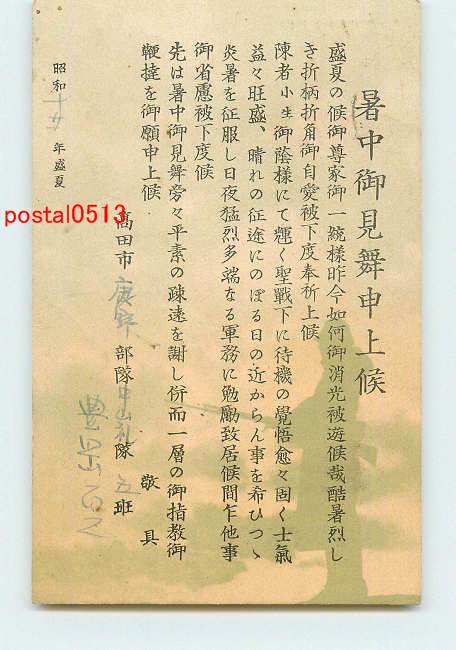 暑中御見舞申上候
盛夏の候御尊家御一統樣昨今如何御消光被遊候哉酷暑烈し
き折柄折角御自愛被下度奉祈上候
陳者小生御蔭樣にて輝く聖戰下に待機の覺悟愈々固く士氣
益々旺盛、晴れの征途にのぼる日の近からん事を希ひつゝ
炎暑を征服し日夜猛烈多端なる軍務に勉勵致居候間乍他事
御省慮被下度候
先は暑中御見舞旁々平素の疎遠を謝し併而一層の御指教御
鞭撻を御願申上候
敬具
昭和十六年盛夏
高田市 部隊中山隊五班
postal0513